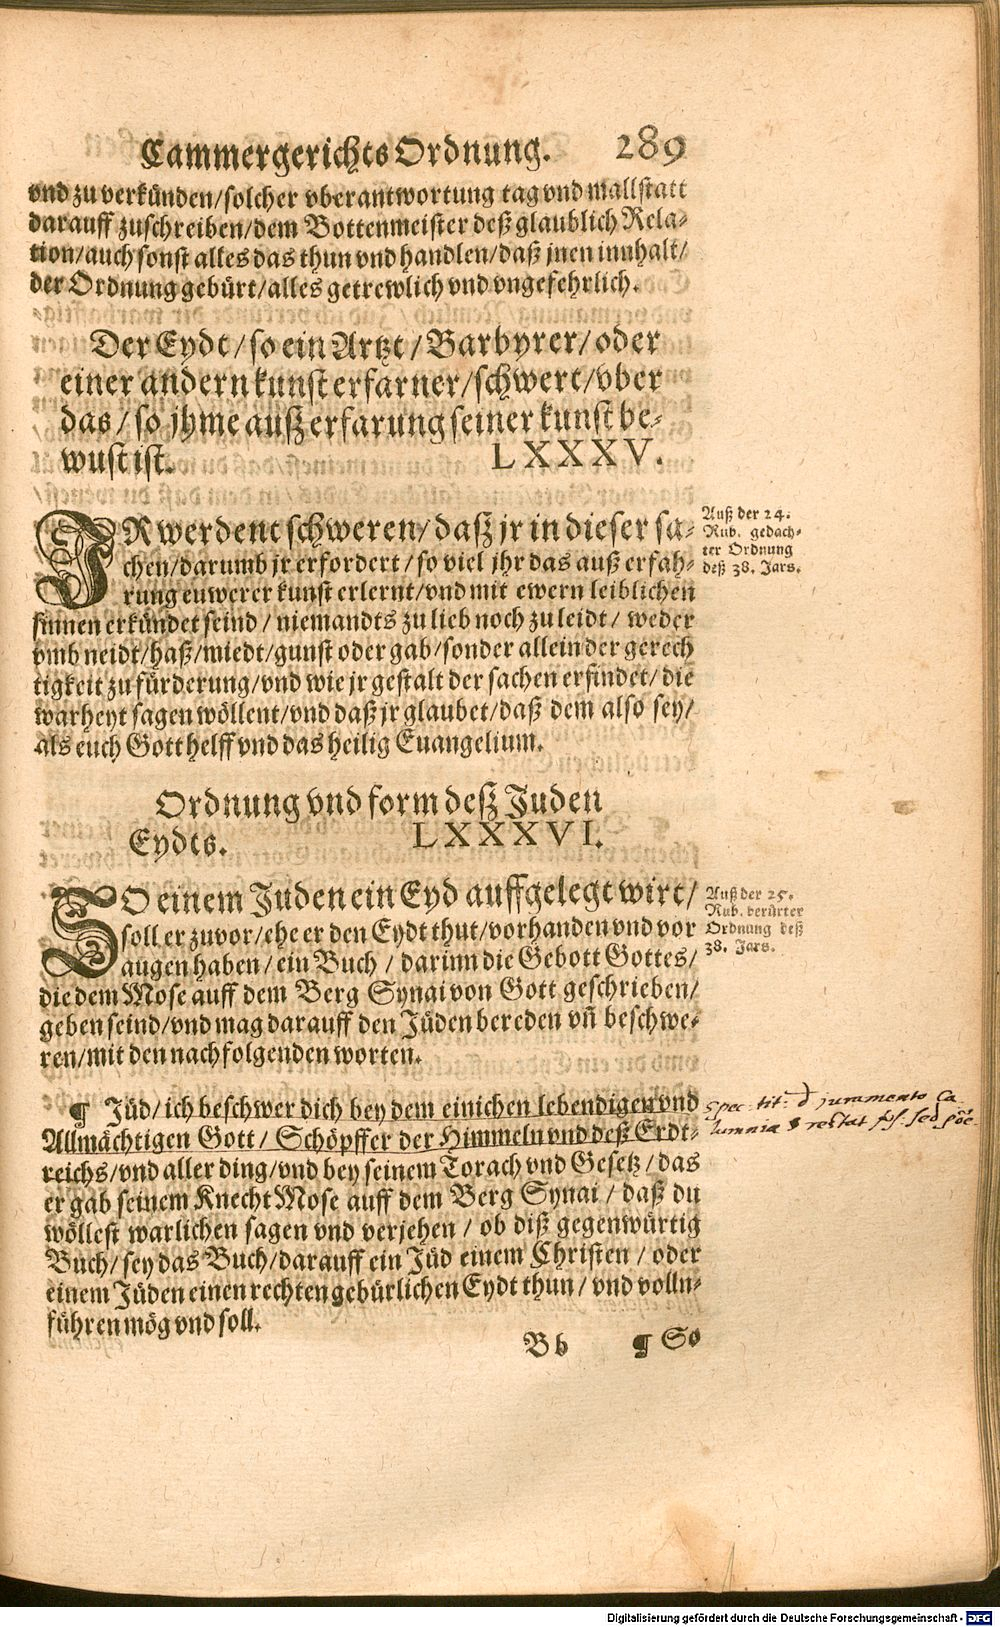 Cammergerichts Ordnung. 289
vnd zu verkünden/solcher vberantwortung tag vnd mallstatt
darauff zuschreiben/dem Bottenmeister deß glaublich Rela-
tion/auch sonst alles das thun vnd handlen/daß jnen innhalt/
der Ordnung gebürt/alles getrewlich vnd vngefehrlich.
Der Eydt/so ein Artzt/Barbyrer/oder
einer andern kunst erfarner/schwert/vber
das/so jhme auß erfarung seiner kunst be-
wust ist. LXXXV.
IR werdent schweren/daß jr in dieser sa-
chen/darumb jr erfordert/so viel jhr das auß erfah-
rung euwerer kunst erlernt/vnd mit ewern leiblichen
sinnen erkündet seind/niemandts zu lieb noch zu leidt/weder
vmb neidt/haß/miedt/gunst oder gab/sonder allein der gerech
tigkeit zu fürderung/vnd wie jr gestalt der sachen erfindet/die
warheyt sagen wöllent/vnd daß jr glaubet/daß dem also sey/
als euch Gott helff vnd das heilig Euangelium.
Auß der 24.
Rub. gedach-
ter Ordnung
deß 38. Jars.
Ordnung vnd form deß Juden
Eydts. LXXXVI.
SO einem Juden ein Eyd auffgelegt wirt/
soll er zuvor/ehe er den Eydt thut/vorhanden vnd vor
augen haben/ein Buch/darinn die Gebott Gottes/
die dem Mose auff dem Berg Synai von Gott geschrieben/
geben seind/vnd mag darauff den Jüden bereden vñ beschwe-
ren/mit den nachfolgenden worten.
Auß der 25.
Rub. berürter
Ordnung deß
38. Jars.
¶ Jüd/ich beschwer dich bey dem einichen lebendigen vnd
Allmächtigen Gott/Schöpffer der Himmeln vnd deß Erdt-
reichs/vnd aller ding/vnd bey seinem Torach vnd Gesetz/das
er gab seinem Knecht Mose auff dem Berg Synai/daß du
wöllest warlichen sagen vnd verjehen/ob diß gegenwürtig
Buch/sey das Buch/darauff ein Jüd einem Christen/oder
einem Jüden einen rechten gebürlichen Eydt thun/vnd volln-
führen mög vnd soll.
Spec. tit. d juramento Ca
lumnia restat sed
Bb ¶ So
Digitalisierung gefördert durch die Deutsche Forschungsgemeinschaft - DFG